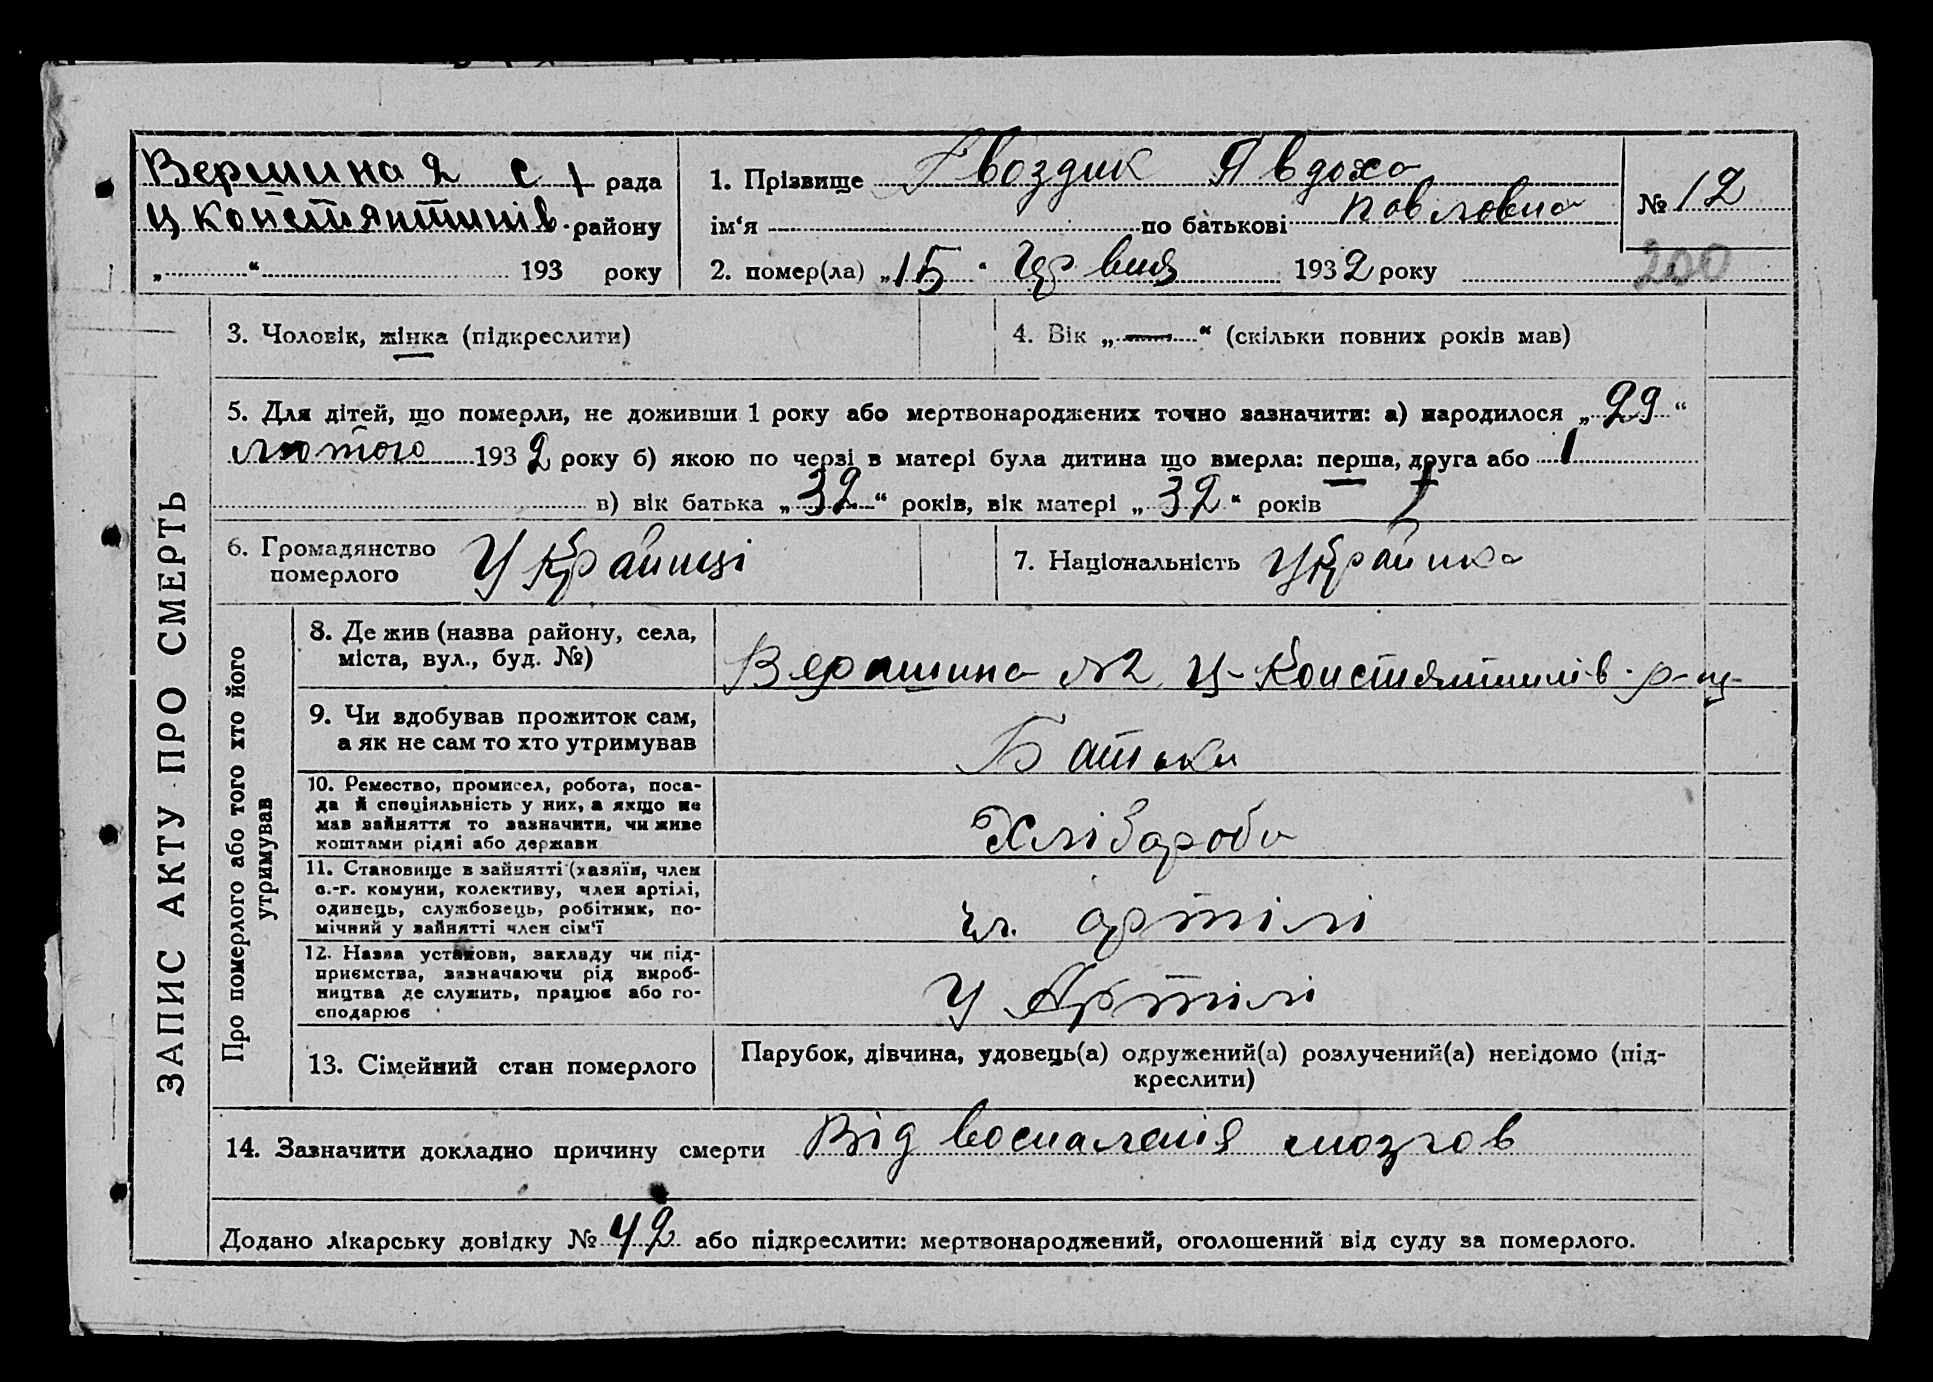 Вершина 2 с / рада
Ц Констянтинів. району
„ “ 193 року
1. Прізвище Гвоздик Явдоха
ім‘я по батькові Павловна
2. помер(ла) „15“ Червня 1932 року
№ 12
200
ЗАПИС АКТУ ПРО СМЕРТЬ
3. Чоловік, жінка (підкреслити)
4. Вік „—“ (скільки повних років мав)
5. Для дітей, що померли, не доживши 1 року або мертвонароджених точно зазначити: а) народилося „29“
лютого 1932 року б) якою по черзі в матері була дитина що вмерла: перша, друга або 1
в) вік батька „32“ років, вік матері „32“ років
6. Громадянство
померлого Українці
7. Національність Українка
Про померлого або того хто його
утримував
8. Де жив (назва району, села,
міста, вул., буд. №)
Вершина №2 Ц-Констянтинів. р-ну
9. Чи вдобував прожиток сам,
а як не сам то хто утримував
Батьки
10. Ремество, промисел, робота, поса-
да й спеціяльність у них, а якщо не
мав зайняття то зазначити, чи живе
коштами рідні або держави
Хлібароби
11. Становище в зайнятті (хазяїн, член
с.-г. комуни, колективу, член артілі,
одинець, службовець, робітник, по-
мічний у зайнятті член сім‘ї
чл. артілі
12. Назва установи, закладу чи під-
приємства, зазначаючи рід вироб-
ництва де служить, працює або го-
сподарює
У Артілі
13. Сімейний стан померлого
Парубок, дівчина, удовець(а) одружений(а) розлучений(а) невідомо (під-
креслити)
14. Зазначити докладно причину смерти Від воспаленія мозгов
Додано лікарську довідку № 42 або підкреслити: мертвонароджений, оголошений від суду за померлого.